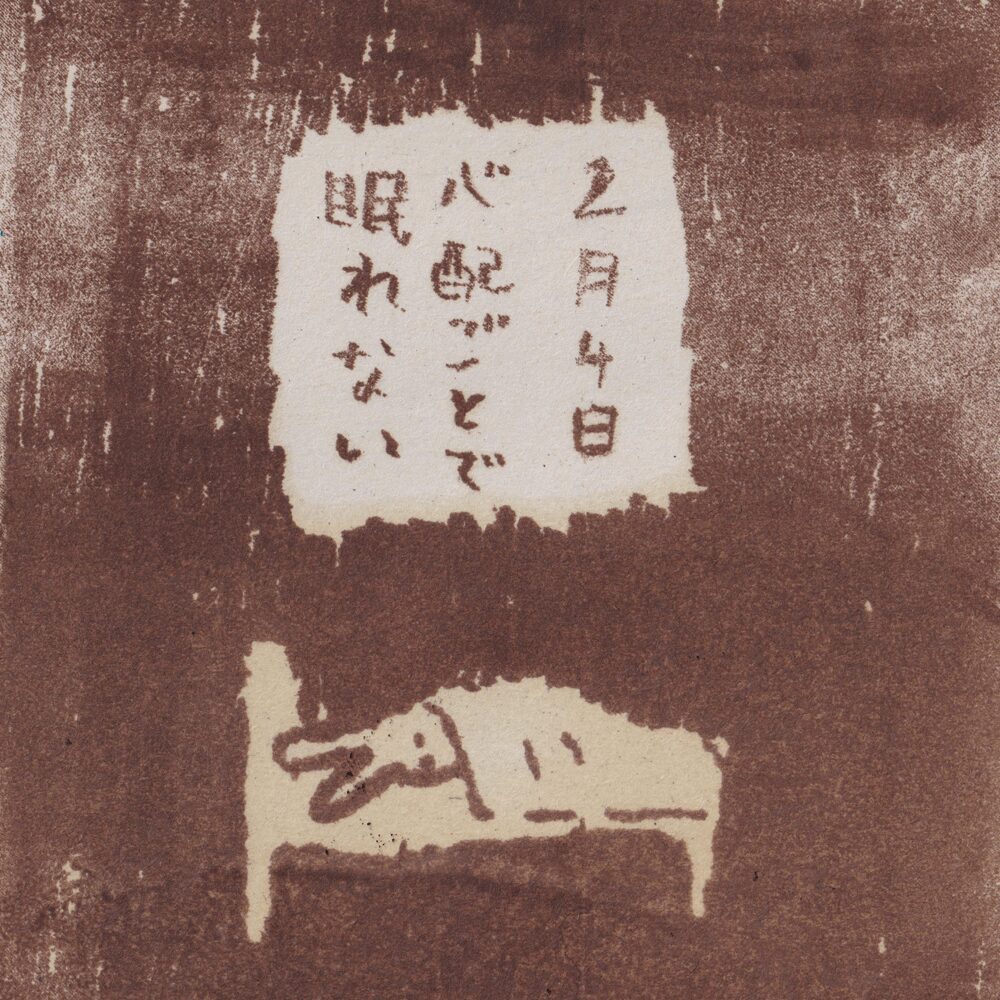 2月4日
心配ごとで
眠れない